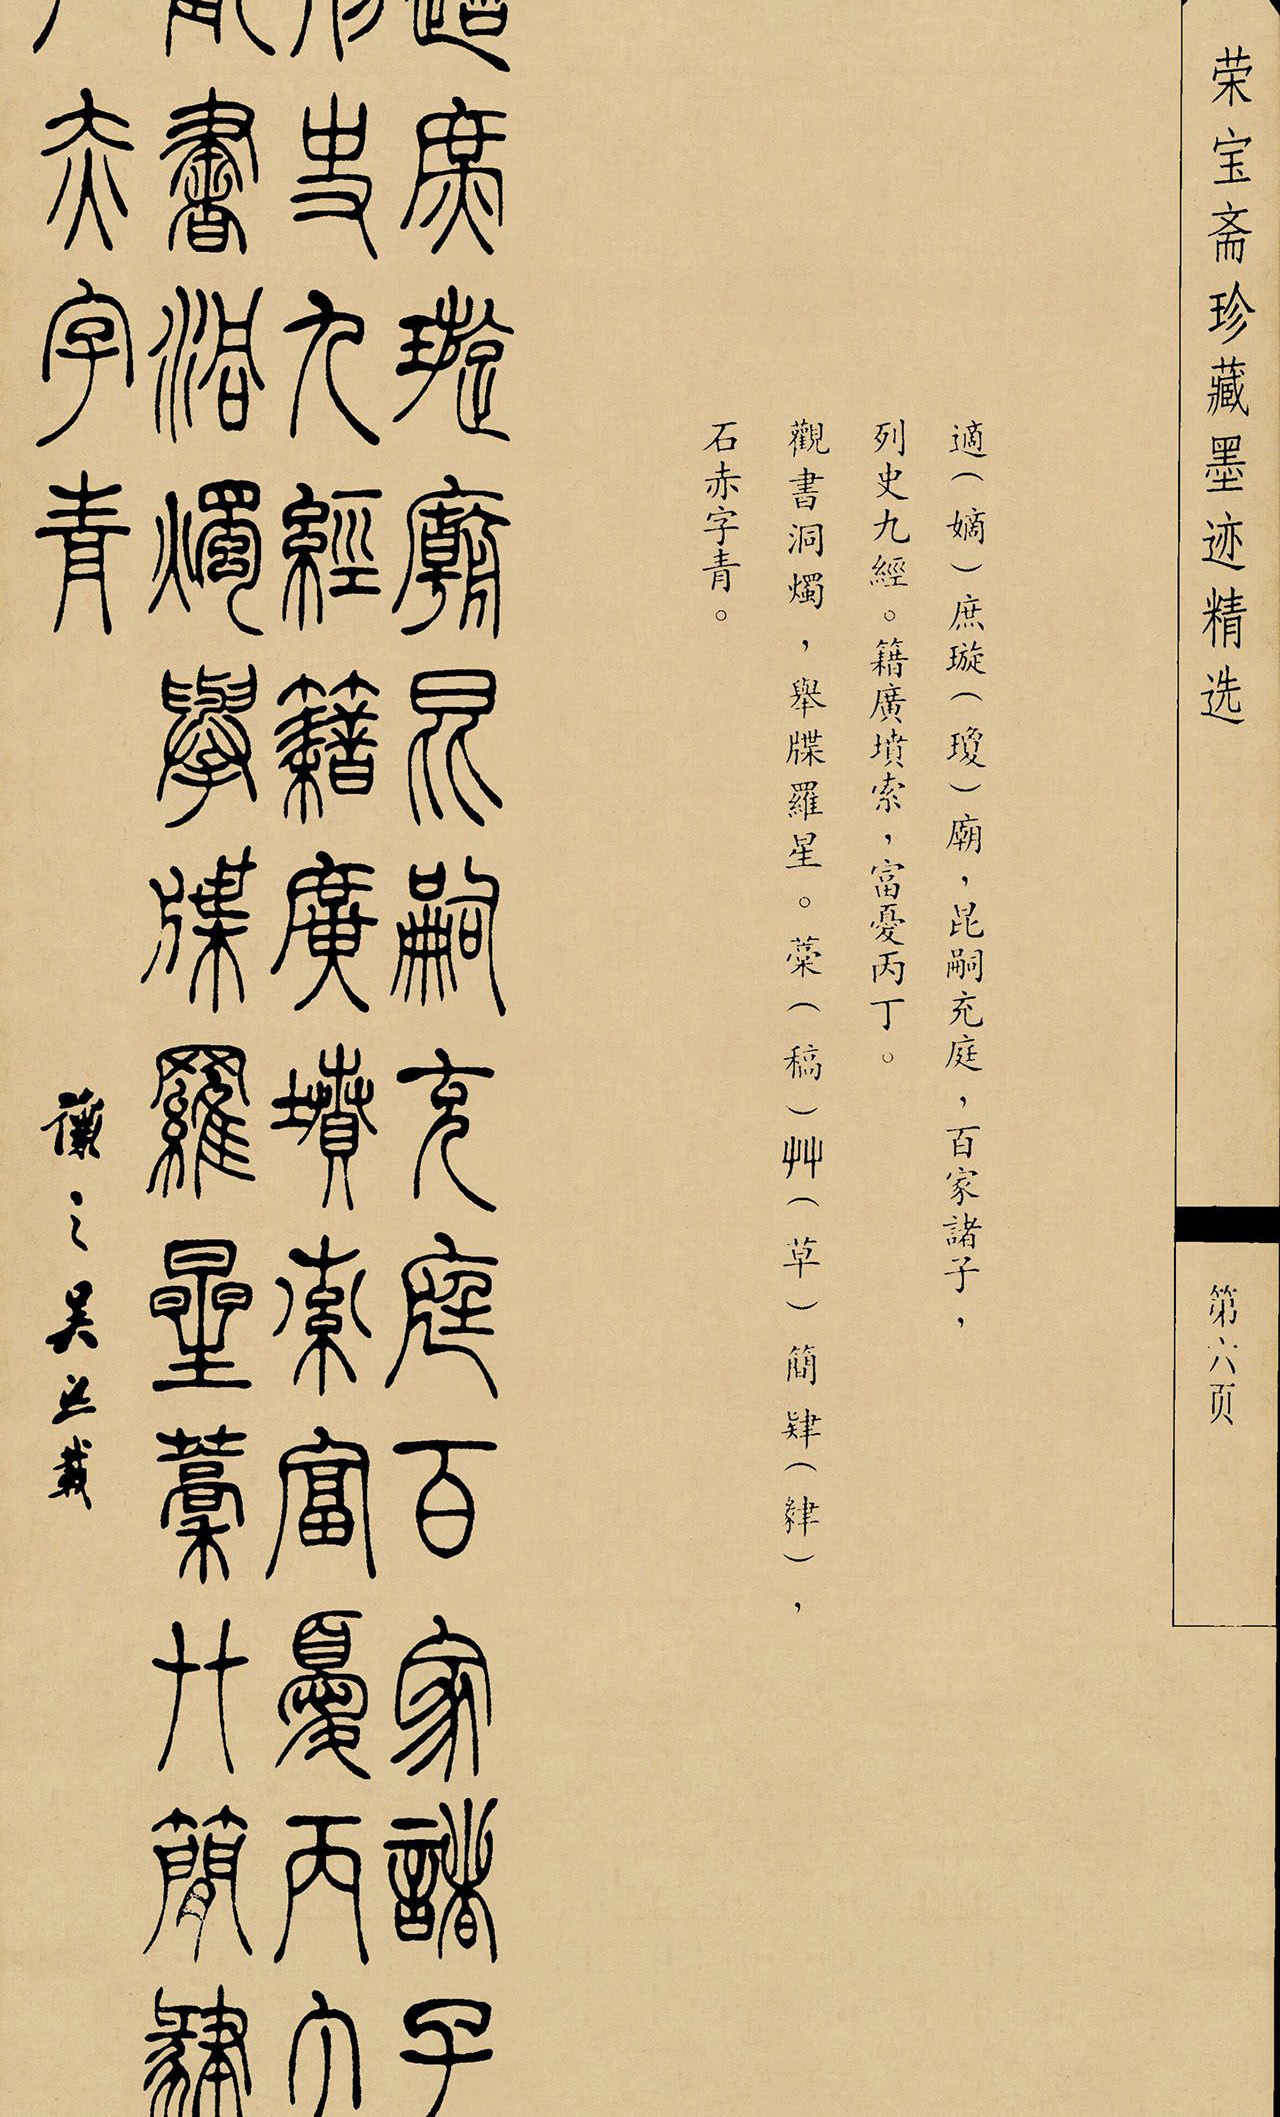 荣宝斋珍藏墨迹精选
第六页
適（嫡）庶璇（瓊）廟，昆嗣充庭，百家諸子，
列史九經。籍廣墳索，富憂丙丁。
觀書洞燭，舉牒羅星。藁（稿）艸（草）簡肄（肄），
石赤字青。
適庶璇廟昆嗣充庭百家諸子
列史九經籍廣墳索富憂丙丁
觀書洞燭舉牒羅星藁艸簡肄
石赤字青
讓之吳熙載